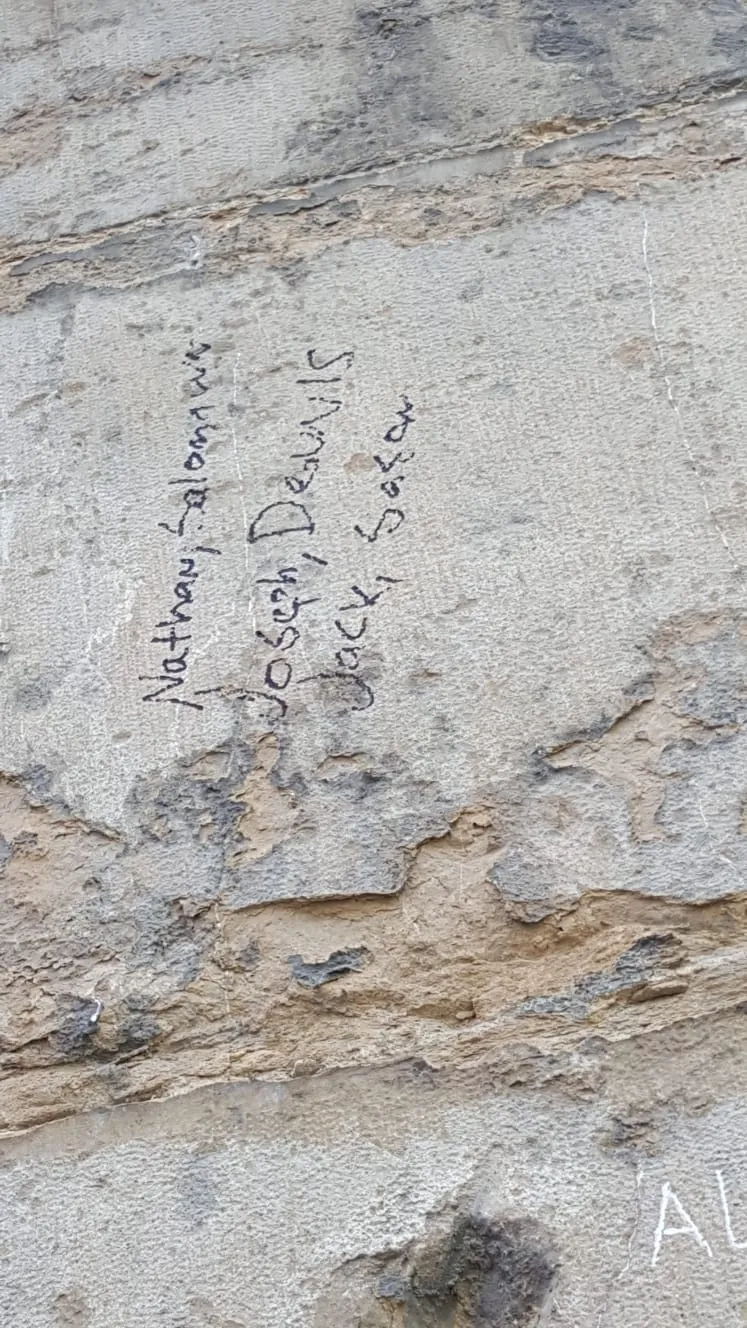 Nathan, Salomαin
Joseph, Dennis
Jack, Sasan
AL